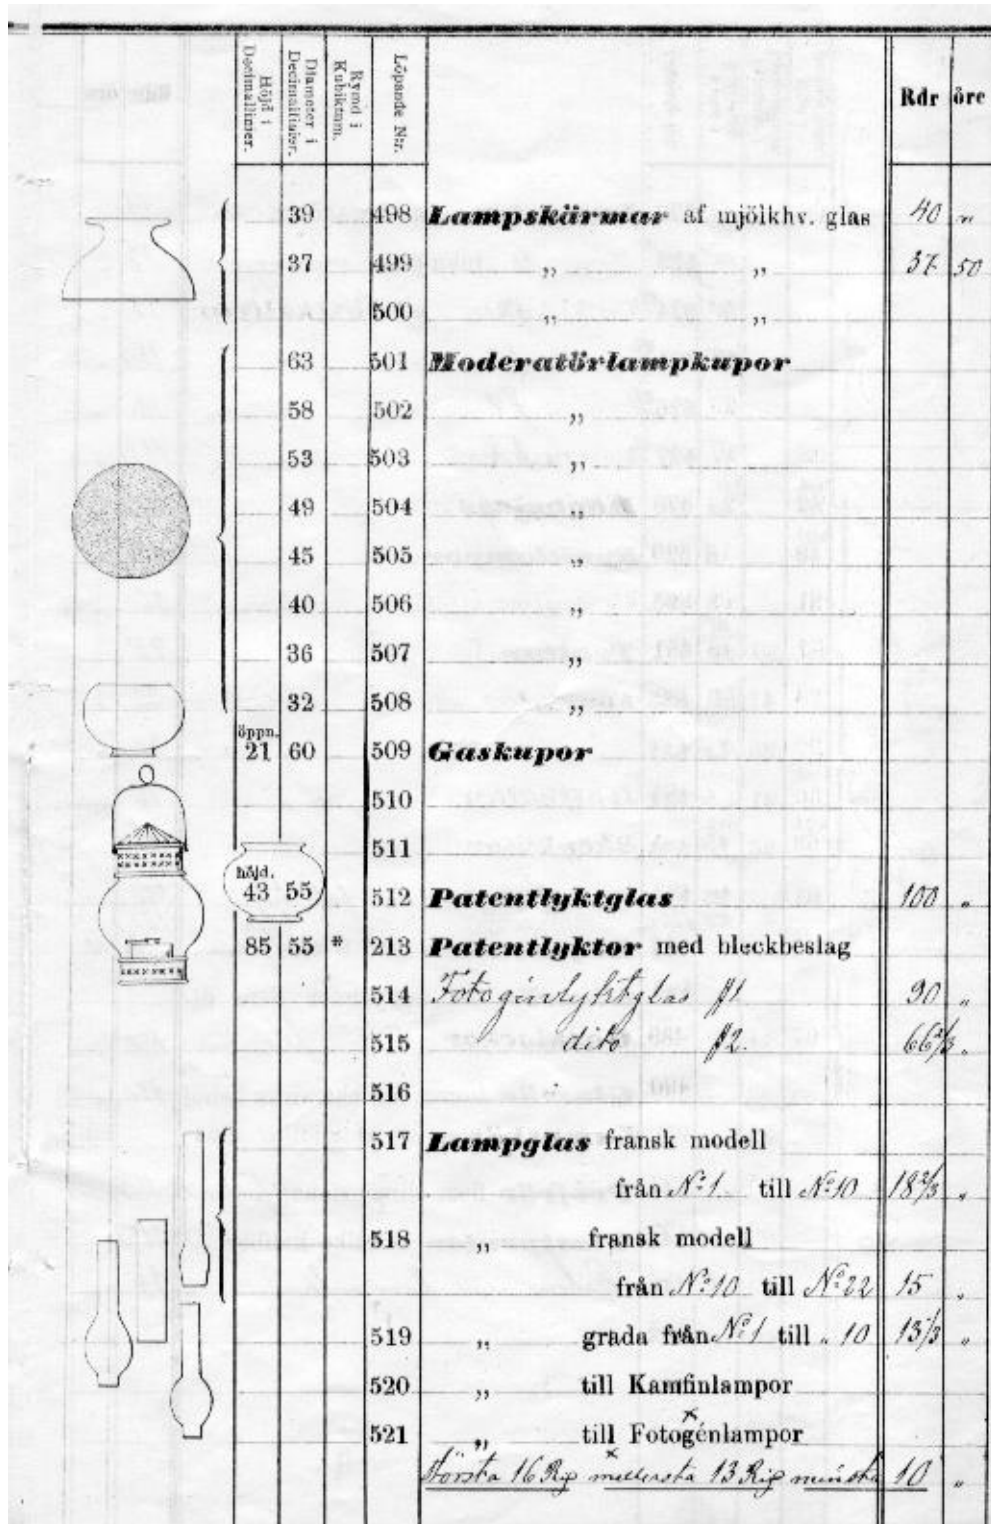 Höjd i Decimallinier. Diameter i Decimallinier. Rymd i Kubiktum. Löpande N:r. Rdr öre
39 498 Lampskärmar af mjölkhv. glas 40 „
37 499 „ „ 37 50
500 „ „
63 501 Moderatörlampkupor
58 502 „
53 503 „
49 504 „
45 505 „
40 506 „
36 507 „
32 508 „
öppn.
21 60 509 Gaskupor
510
511
höjd.
43 55 512 Patentlyktglas 100 „
85 55 * 213 Patentlyktor med bleckbeslag
514 Fotoginlyktglas #1 90 „
515 dito #2. 66 2/3 „
516
517 Lampglas fransk modell
från No 1 till No 10 18 2/3 „
518 „ fransk modell
från No 10 till No 22 15 „
519 „ grada från No 1 till „ 10 13 1/3 „
520 „ till Kamfinlampor
521 „ till Fotogénlampor
största 16 Rig mellersta 13 Rig minsta 10 „